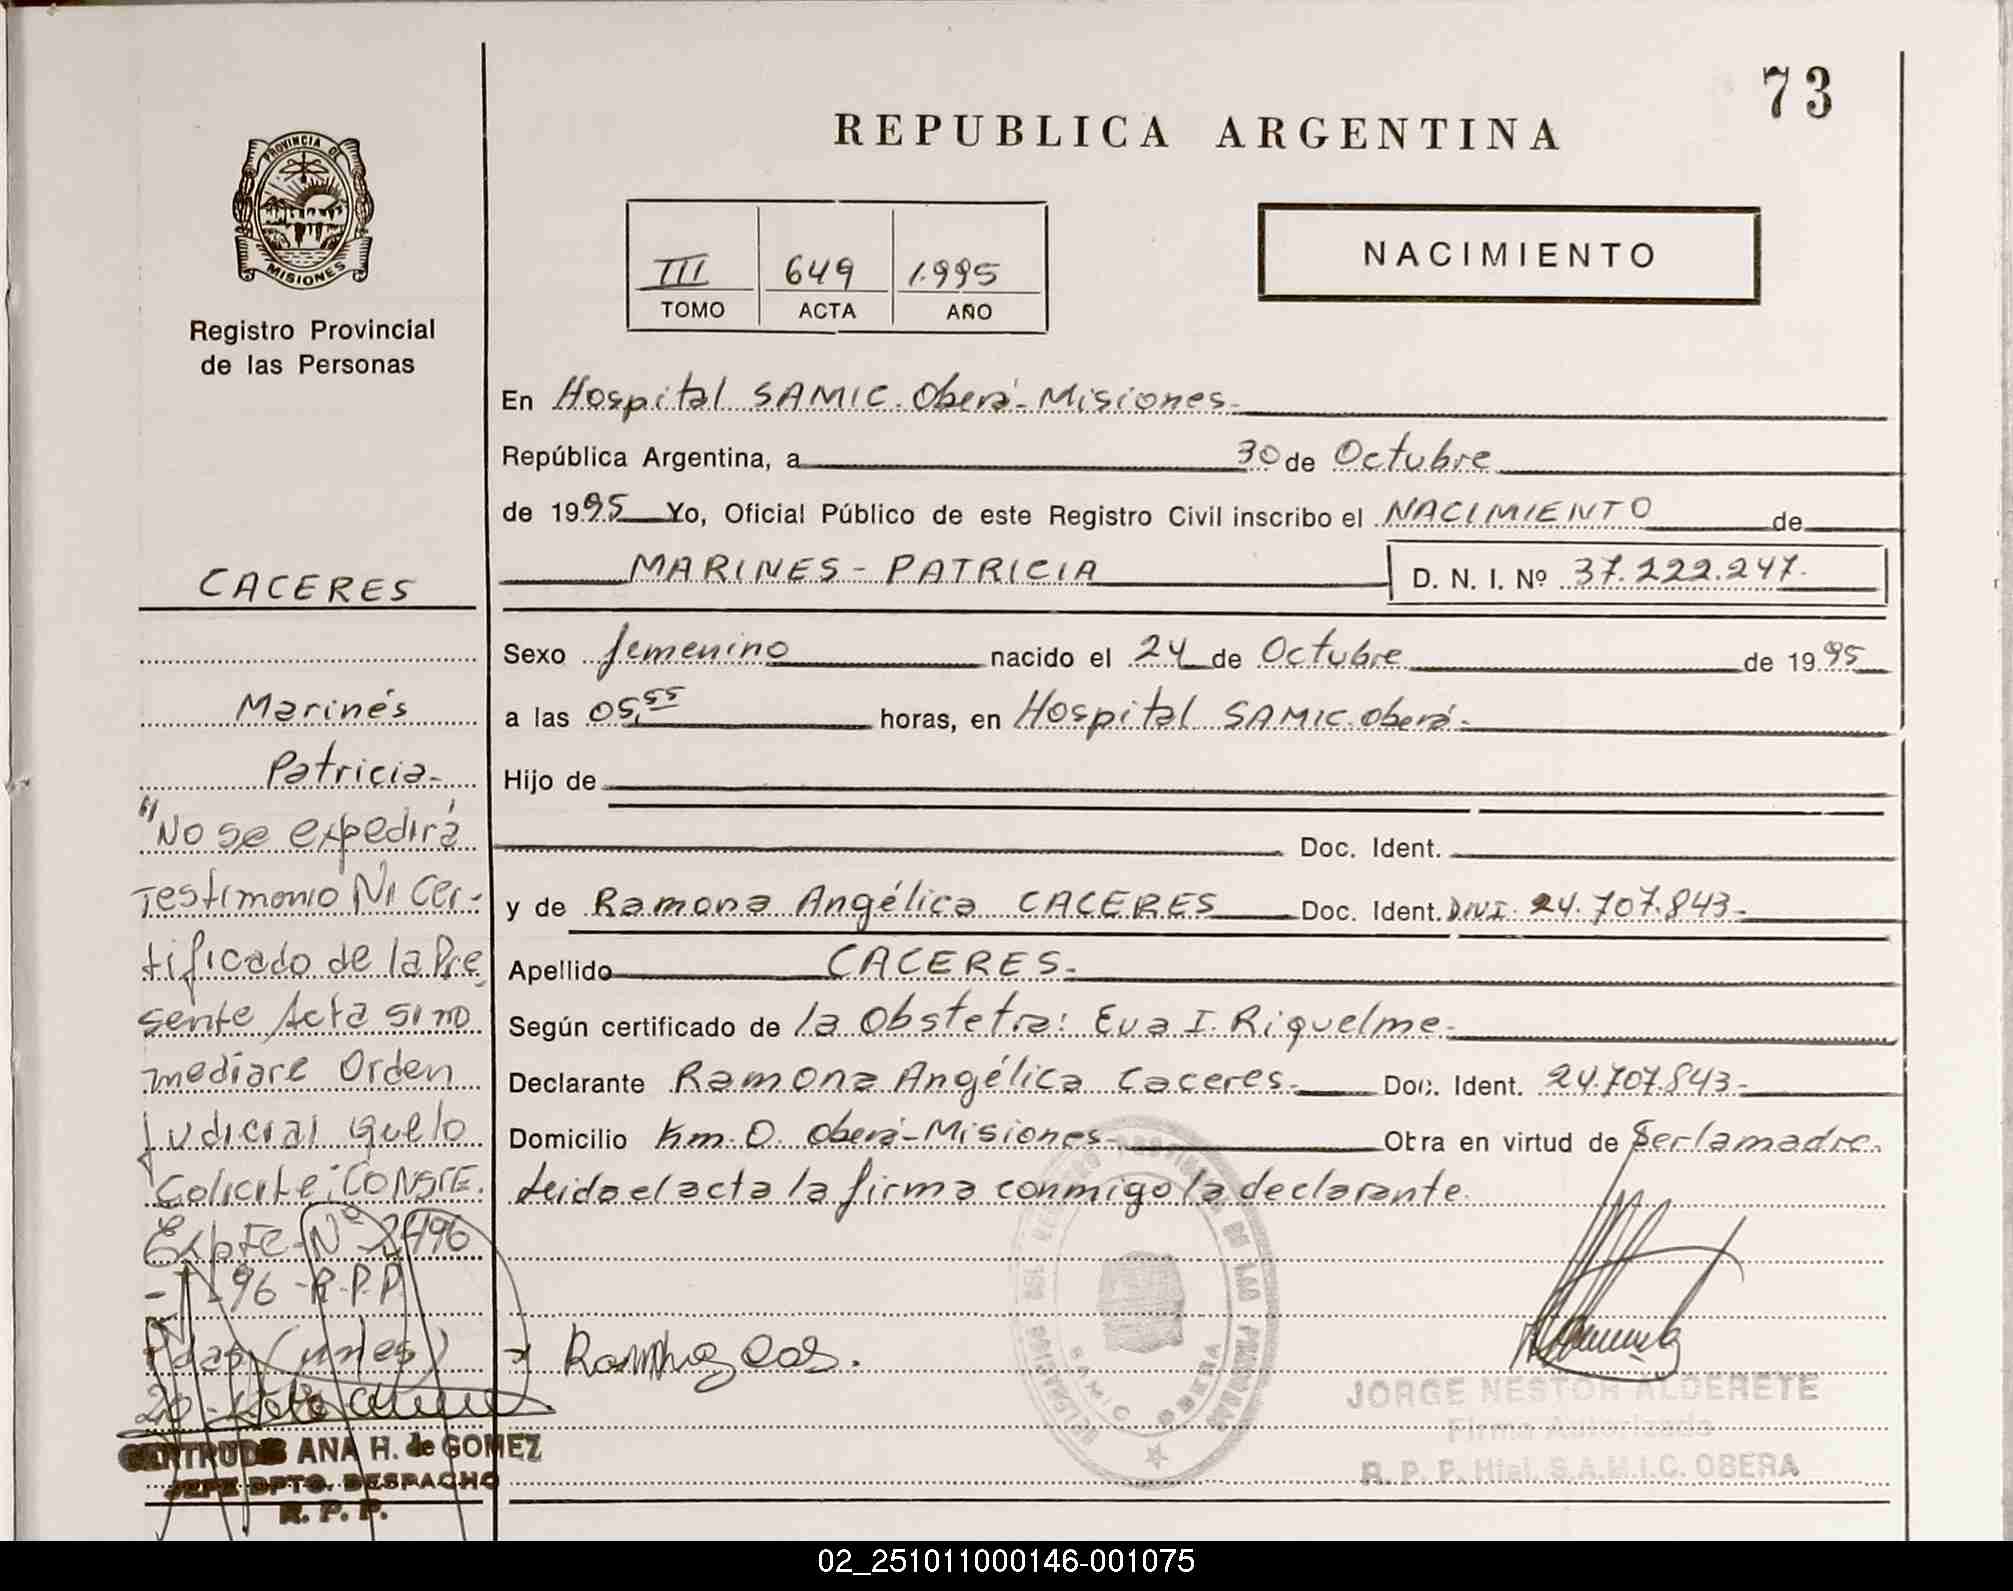 73
REPUBLICA ARGENTINA
PROVINCIA DE
MISIONES
Registro Provincial
de las Personas
III 649 1.995
TOMO ACTA AÑO
NACIMIENTO
En Hospital SAMIC. Oberá - Misiones.
República Argentina, a 30 de Octubre
de 1995 Yo, Oficial Público de este Registro Civil inscribo el NACIMIENTO de
MARINES - PATRICIA D. N. I. Nº 37.222.247.
Sexo femenino nacido el 24 de Octubre de 1995
a las 05,55 horas, en Hospital SAMIC. Oberá -
Hijo de
Doc. Ident.
y de Ramona Angélica CACERES Doc. Ident. D.N.I. 24.707.843 -
Apellido CACERES -
Según certificado de la Obstetra: Eva I. Riquelme -
Declarante Ramona Angélica Caceres - Doc. Ident. 24.707.843 -
Domicilio Km. 0. Oberá - Misiones - Obra en virtud de ser la madre.
Leida el acta la firma conmigo la declarante.
CACERES
Marinés
Patricia -
"No se expedirá
Testimonio Ni Cer-
tificado de la Pre
sente Acta si no
mediare Orden
Judicial que lo
Solicite; CONSTE.
Expte. Nº 2496
- 96 - R.P.P.
JORGE NESTOR ALDERETE
Firma Autorizada
R. P. P. Htal. S.A.M.I.C. OBERA
GERTRUDIS ANA H. de GOMEZ
JEFE DPTO. DESPACHO
R. P. P.
02_251011000146-001075